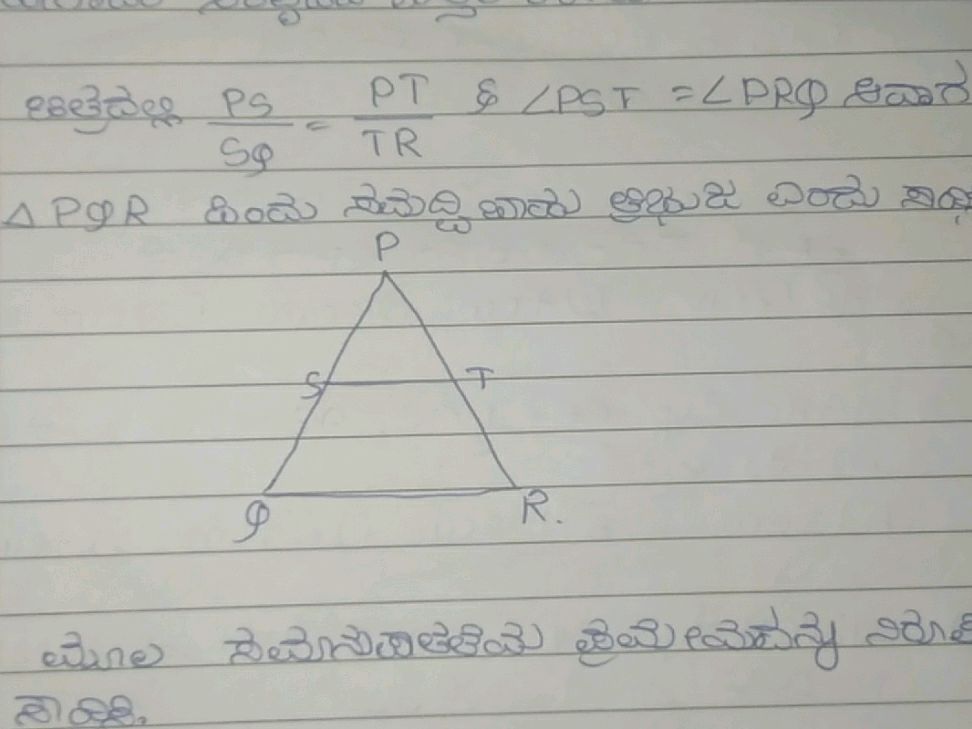 ಚಿತ್ರದಲ್ಲಿ PS/SQ = PT/TR & ∠PST = ∠PRQ ಆದಾರೆ
△ PQR ಒಂದು ಸಮದ್ವಿಬಾಹು ತ್ರಿಭುಜ ಎಂದು
P
S T
Q R.
ಮೂಲ ಸಮಾನುಪಾತತೆಯ ಪ್ರಮೇಯವನ್ನು
ಸಾಧಿಸಿ.